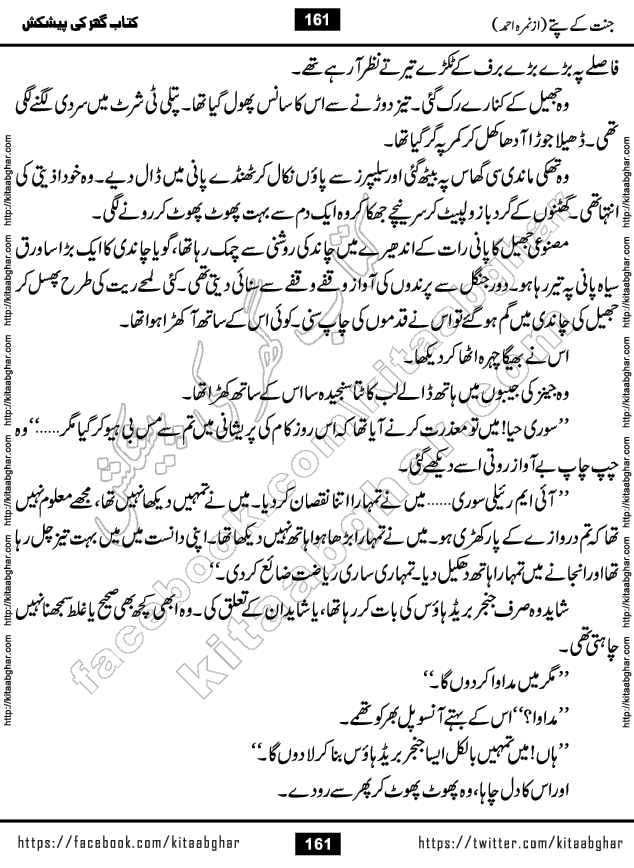 جنت کے پتے (از نمرہ احمد)
161
کتاب گھر کی پیشکش
فاصلے پہ بڑے بڑے برف کے ٹکڑے تیرتے نظر آ رہے تھے۔
وہ جھیل کے کنارے رک گئی۔ تیز دوڑنے سے اس کا سانس پھول گیا تھا۔ پتلی ٹی شرٹ میں سردی لگنے لگی
تھی۔ ڈھیلا جوڑا آدھا کھل کر کمر پہ گر گیا تھا۔
وہ تھکی ماندی سی گھاس پہ بیٹھ گئی اور سلیپرز سے پاؤں نکال کر ٹھنڈے پانی میں ڈال دیے۔ وہ خود اذیتی کی
انتہا تھی۔ گھٹنوں کے گرد بازو لپیٹ کر سر نیچے جھکا کر وہ ایک دم سے بہت پھوٹ پھوٹ کر رونے لگی۔
مصنوعی جھیل کا پانی رات کے اندھیرے میں چاند کی روشنی سے چمک رہا تھا، گویا چاندی کا ایک بڑا سا ورق
سیاہ پانی پہ تیر رہا ہو۔ دور جنگل سے پرندوں کی آواز وقفے وقفے سے سنائی دیتی تھی۔ کئی لمحے ریت کی طرح پھسل کر
جھیل کی چاندی میں گم ہو گئے تو اس نے قدموں کی چاپ سنی۔ کوئی اس کے ساتھ آ کھڑا ہوا تھا۔
اس نے بھیگا چہرہ اٹھا کر دیکھا۔
وہ جینز کی جیبوں میں ہاتھ ڈالے لب کاٹتا سنجیدہ سا اس کے ساتھ کھڑا تھا۔
’’سوری حیا! میں تو معذرت کرنے آیا تھا کہ اس روز کام کی پریشانی میں تم سے مس بی ہیو کر گیا مگر......‘‘ وہ
چپ چاپ بے آواز روتی اسے دیکھے گئی۔
’’آئی ایم رئیلی سوری...... میں نے تمہارا اتنا نقصان کر دیا۔ میں نے تمہیں دیکھا نہیں تھا، مجھے معلوم نہیں
تھا کہ تم دروازے کے پار کھڑی ہو۔ میں نے تمہارا بڑھا ہوا ہاتھ نہیں دیکھا تھا۔ اپنی دانست میں میں بہت تیز چل رہا
تھا اور انجانے میں تمہارا ہاتھ دھکیل دیا۔ تمہاری ساری ریاضت ضائع کر دی۔‘‘
شاید وہ صرف جنجر بریڈ ہاؤس کی بات کر رہا تھا، یا شاید ان کے تعلق کی۔ وہ ابھی کچھ بھی صحیح یا غلط سمجھنا نہیں
چاہتی تھی۔
’’مگر میں مداوا کر دوں گا۔‘‘
’’مداوا؟‘‘ اس کے بہتے آنسو پل بھر کو تھمے۔
’’ہاں! میں تمہیں بالکل ایسا جنجر بریڈ ہاؤس بنا کر لا دوں گا۔‘‘
اور اس کا دل چاہا، وہ پھوٹ پھوٹ کر پھر سے رو دے۔
کتاب گھر کی پیشکش
facebook.com/kitaabghar
kitaabghar.com
http://kitaabghar.com http://kitaabghar.com http://kitaabghar.com http://kitaabghar.com http://kitaabghar.com http://kitaabghar.com
http://kitaabghar.com http://kitaabghar.com http://kitaabghar.com http://kitaabghar.com http://kitaabghar.com http://kitaabghar.com
https://facebook.com/kitaabghar
161
https://twitter.com/kitaabghar